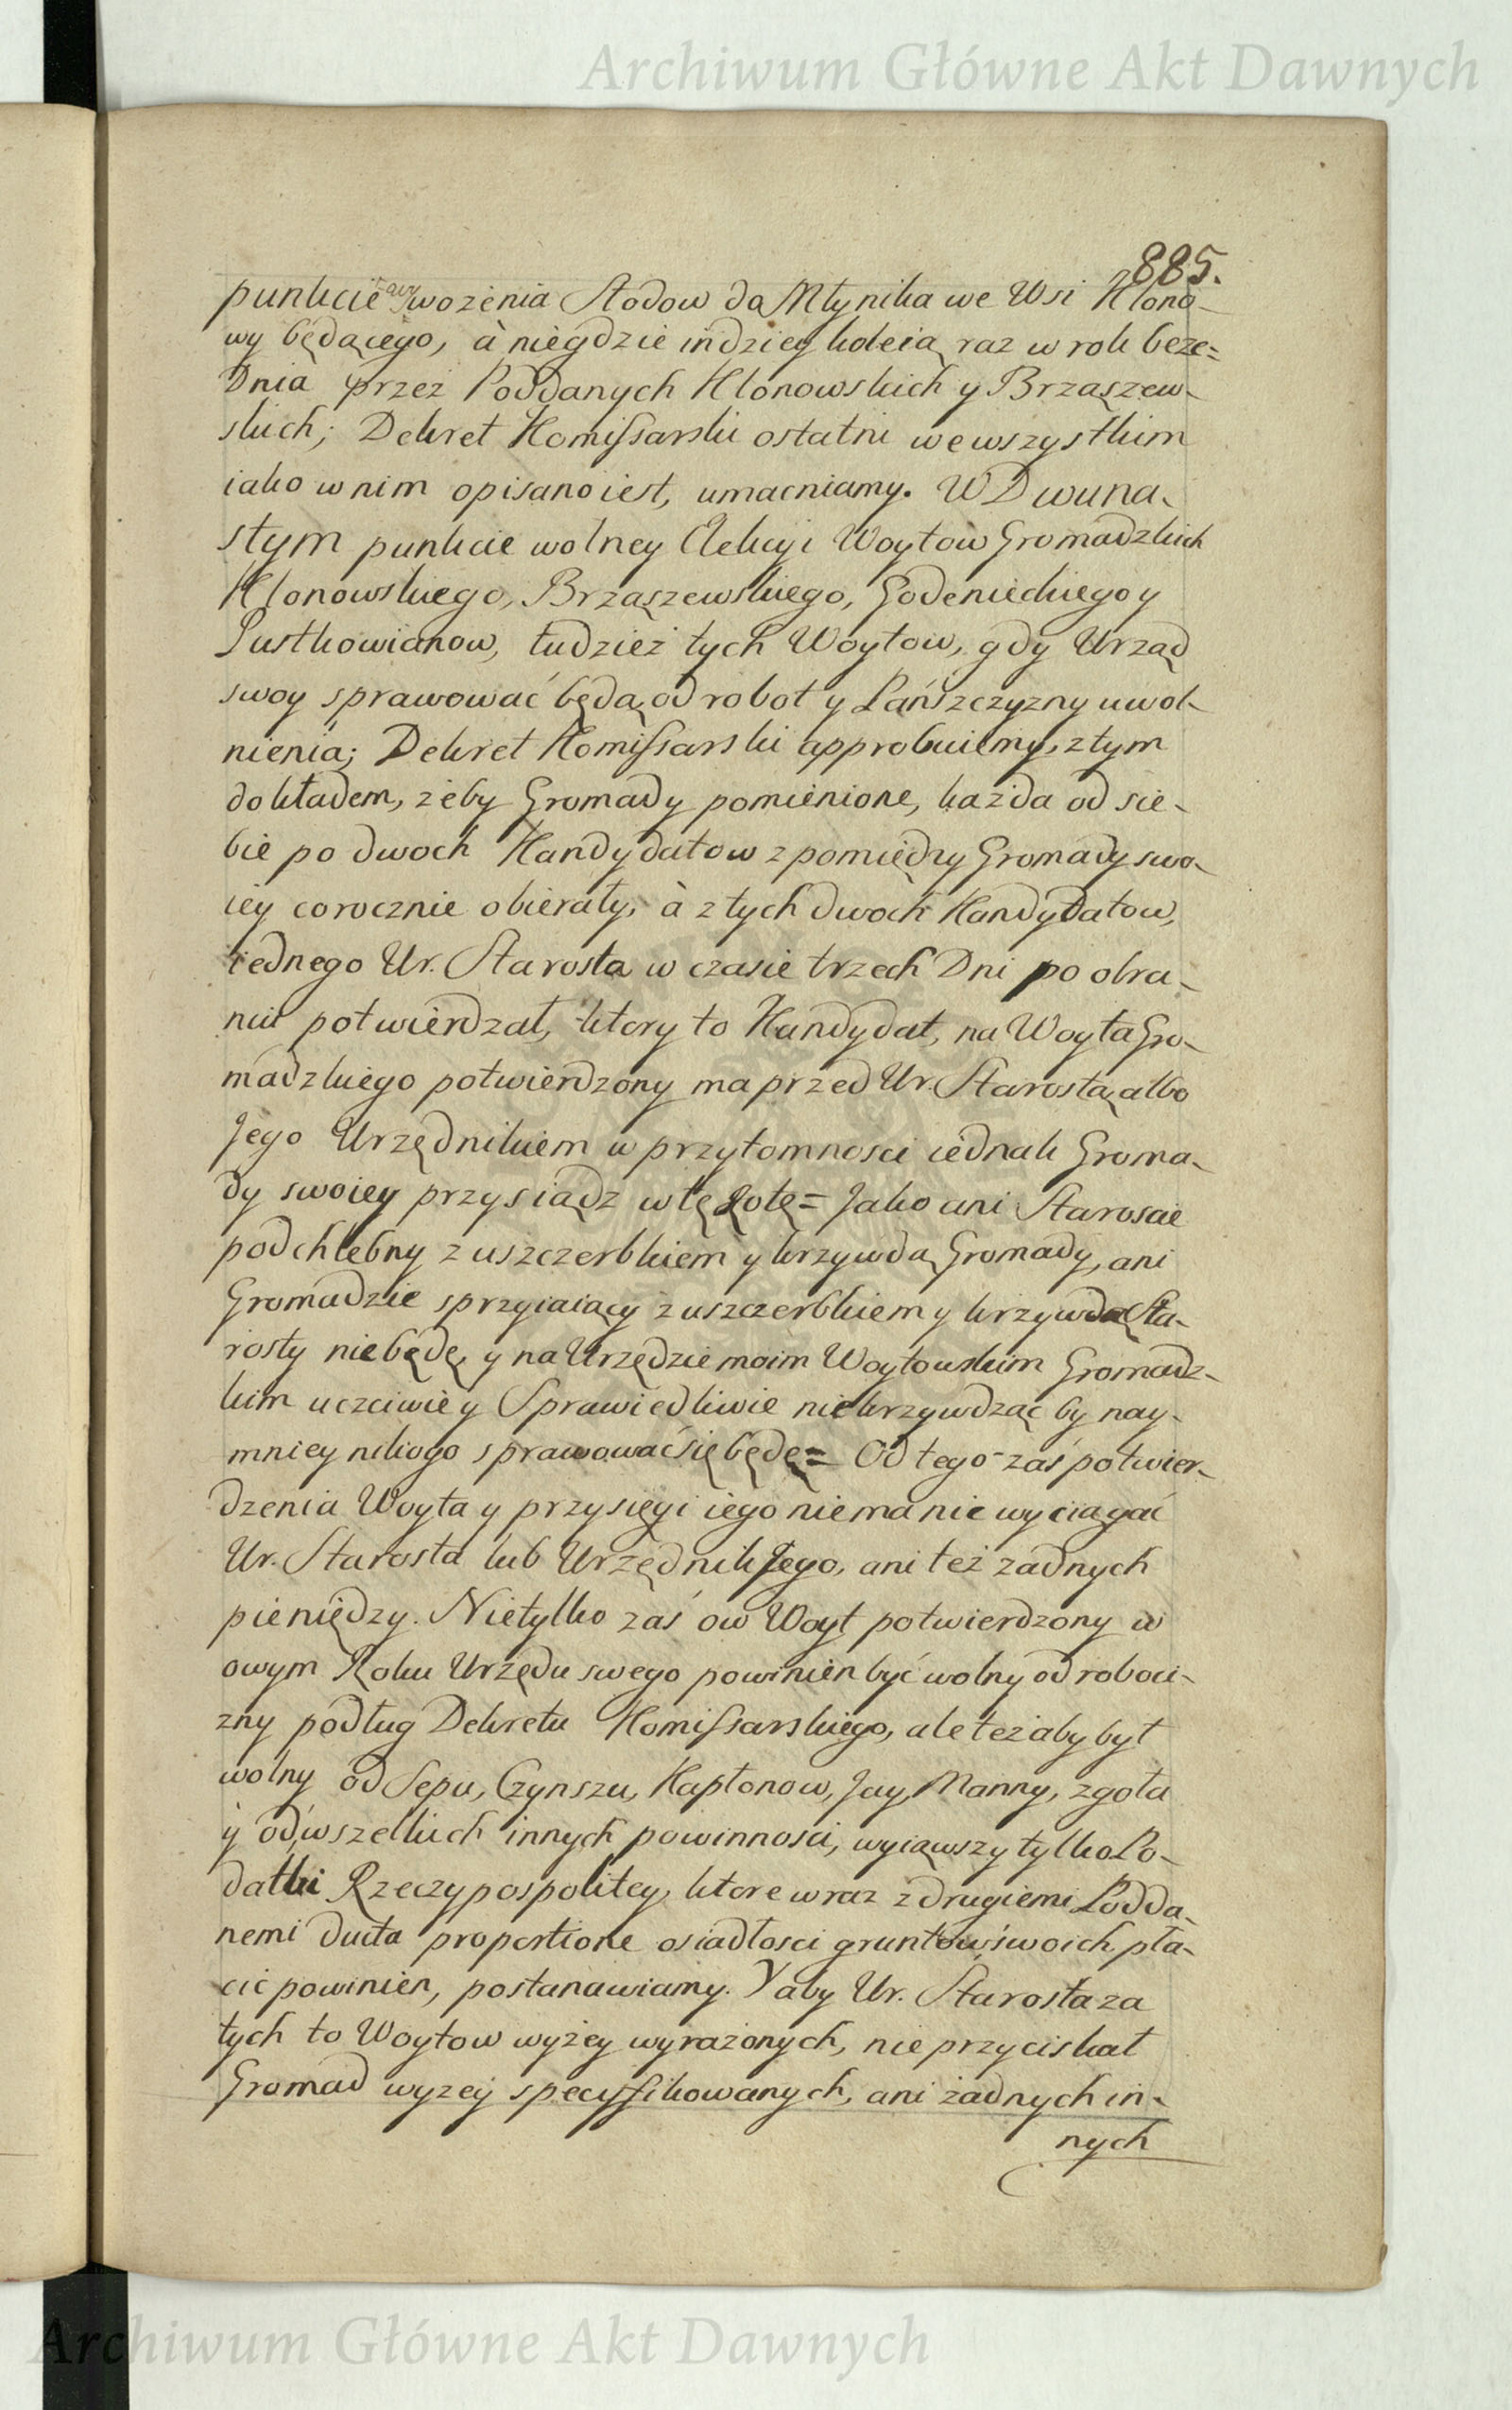 Archiwum Główne Akt Dawnych
885.
punkcie wwożenia Słodow do Młynika we Wsi Klono-
wy będącego, à niegdzie indziey koleią raz w rok beze=
Dnia przez Poddanych Klonowskich y Brząszew-
skich; Dekret Komissarski ostatni wewszystkim
iako w nim opisano iest, umacniamy. W Dwuna-
stym punkcie wolney Elekcyi Woytow Gromadzkich
Klonowskiego, Brząszewskiego, Godenieckiego y
Pustkowianow, tudzież tych Woytow, gdy Urząd
swoy sprawować będą, od robot y Pańszczyzny uwol-
nienia; Dekret Komissarski approbuiemy, z tym
dokładem, żeby Gromady pomienione, każda od sie-
bie po dwoch Kandydatow z pomiędzy Gromady swo-
iey corocznie obierały, à z tych dwoch Kandydatow,
iednego Ur. Starosta w czasie trzech Dni po obra-
niu potwierdzał, ktory to Kandydat, na Woyta Gro-
madzkiego potwierdzony ma przed Ur. Starostą albo
Jego Urzędnikiem w przytomnosci iednak Groma-
dy swoiey przysiądz w tę Rotę= Jako ani Staroscie
podchlebny z uszczerbkiem y krzywdą Gromady, ani
Gromadzie sprzyiaiący z uszczerbkiem y krzywdą Sta-
rosty nie będę, y na Urzędzie moim Woytowskim Gromadz-
kim uczciwie y Sprawiedliwie nie krzywdząc by nay-
mniey nikogo sprawować się będę= Od tego zaś potwier-
dzenia Woyta y przysięgi iego nie ma nic wyciągać
Ur. Starosta lub Urzędnik Jego, ani też żadnych
pieniędzy. Nietylko zaś ow Woyt potwierdzony w
owym Roku Urzędu swego powinien być wolny od roboci-
zny podług Dekretu Komissarskiego, ale też aby był
wolny od Sepu, Czynszu, Kapłonow, Jay, Manny, zgoła
y od wszelkich innych powinnosci, wyiąwszy tylko Po-
datki Rzeczypospolitey, ktore wraz z drugiemi Podda-
nemi ducta proportione osiadłosci gruntow swoich pła-
cić powinien, postanawiamy. Y aby Ur. Starosta za
tych to Woytow wyżey wyrażonych, nie przyciskał
Gromad wyzey specyfikowanych, ani żadnych in-
nych
Archiwum Główne Akt Dawnych